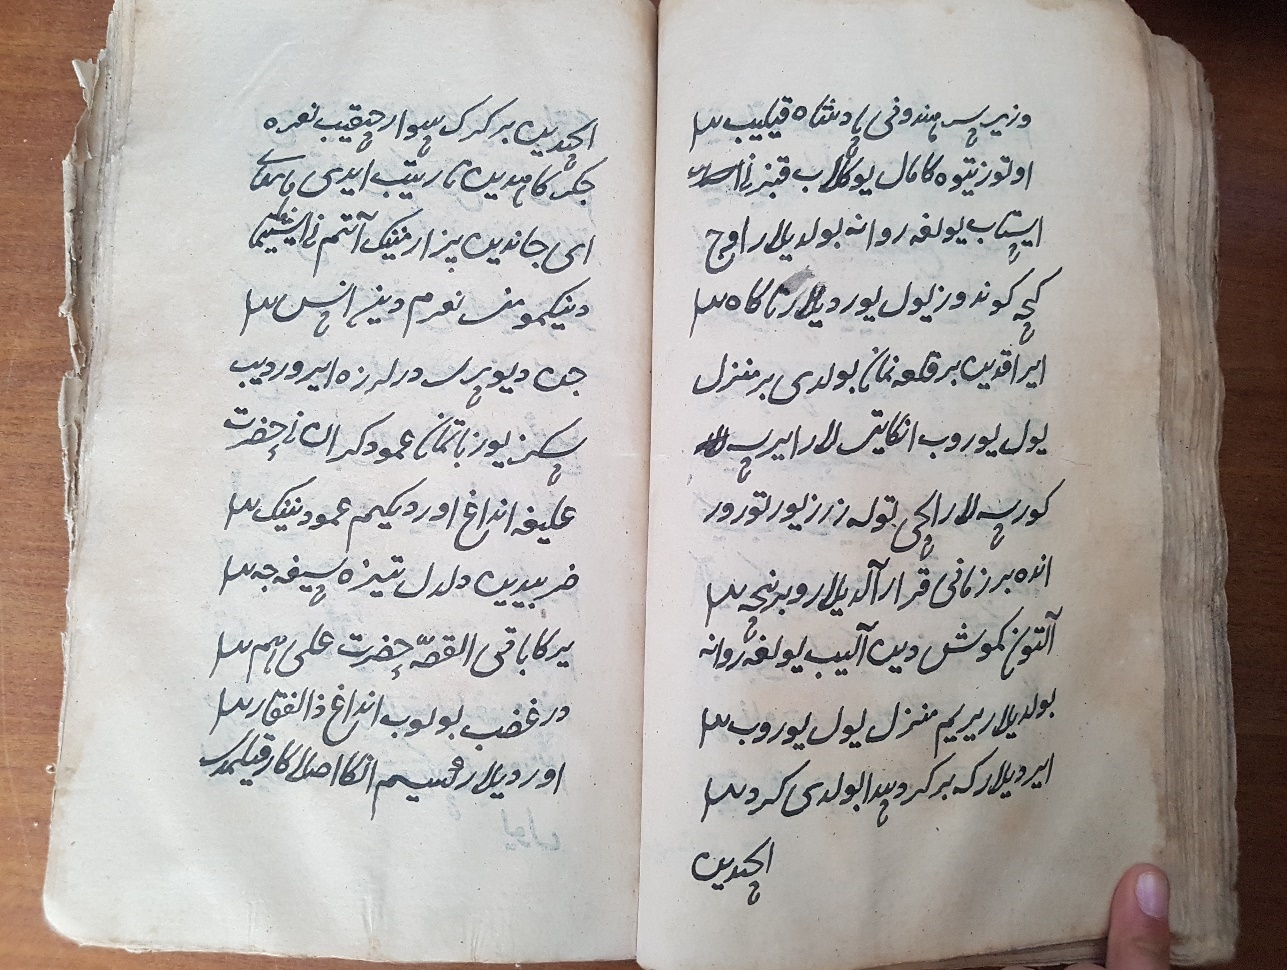 وزیر پسر هندونی پادشاه قیلیب
اوتوز تیوه کا مال یوکلاب قنبرنی
ایستاب یولغه روانه بولدیلار اوچ
کچه کوندوز یول یوردیلار تا کاه
ایراقدین بر قلعه نمایان بولدی بر منزل
یول یوروب انکا یتی لار ایرسه
کورسه لار ایچی توله زرزیور تورور
انده بر زمانی قرار آلدیلار و برنچه
آلتون کموش دین آلیب یولغه روانه
بولدیلار یریم منزل یول یوروب
ایردیلار که بر کرد پیدا بولدی کرد
ایچیدین
ایچیدین بر کرک سوار چیقیب نعره
جکرکاهیدین تارتیب ایدی
ای جاندین بیزار مننیک آتیم نی
دیمکمو من نعرم دین انس
جن دیو پری در لرزه ایروردیب
سکز یوز باتمان عمود کران نی حضرت
علیغه انداغ اوردیکیم عمودنینک
ضربیدین دلدل تیزه سیغه چه
یرکا باتی القصه حضرت علی هم
در غضب بولوب انداغ ذالفقار
اوردیلار انکا اصلا کار قیلمدی
یول